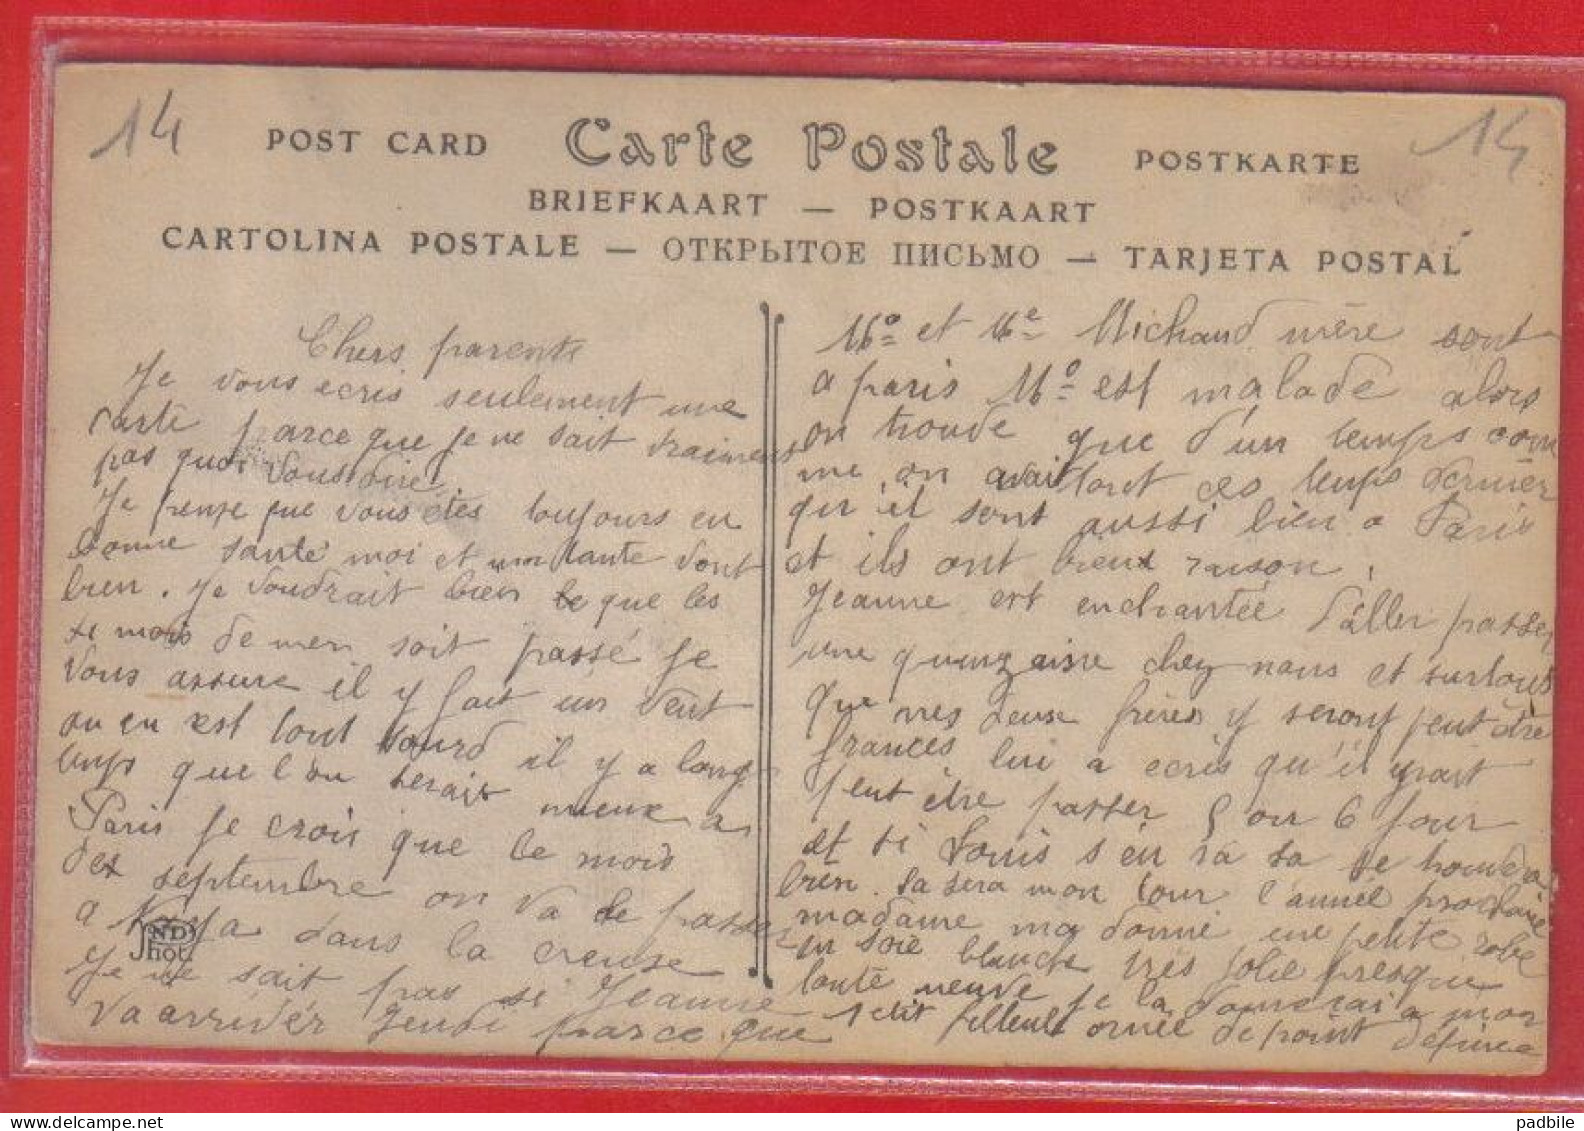 14
14
POST CARD Carte Postale POSTKARTE
BRIEFKAART — POSTKAART
CARTOLINA POSTALE — ОТКРЫТОЕ ПИСЬМО — TARJETA POSTAL
Chers parents
Je vous ecris seulement une
carte parce que je ne sait vraiment
pas quoi vous dire
Je pense que vous êtes toujours en
bonne santé moi et mon tante vont
bien. Je voudrait bien que les
mois de mer soit passé je
vous assure il y fait un vent
ou en est tout sourd il y a long
temps que l'on serait mieux a
Paris je crois que le mois
des septembre on va se passer
a dans la creuse
Je ne sait pas si Jeanne
va arrivér jeudi parce que
Mo et Me Michaud mère sont
a paris Mo est malade alors
on trouve que d'un temps com
me on avait tout ces temps dernier
qu'il sont aussi bien a Paris
et ils ont bieux raison,
Jeanne est enchantée d'aller passer
une quinzaine chez nous et surtout
que mes deux frères y seront peut être
frances lui a ecris qu'il yrait
peut être passer 5 ou 6 jour
et si Louis s'en va sa se trouvera
bien. Sa sera mon tour l'année prochaine
madame ma donné une petite robe
en soie blanche très jolie presque
toute neuve je la donnerai a mon
petit filleul ornée de point
ND
Phot
padbile